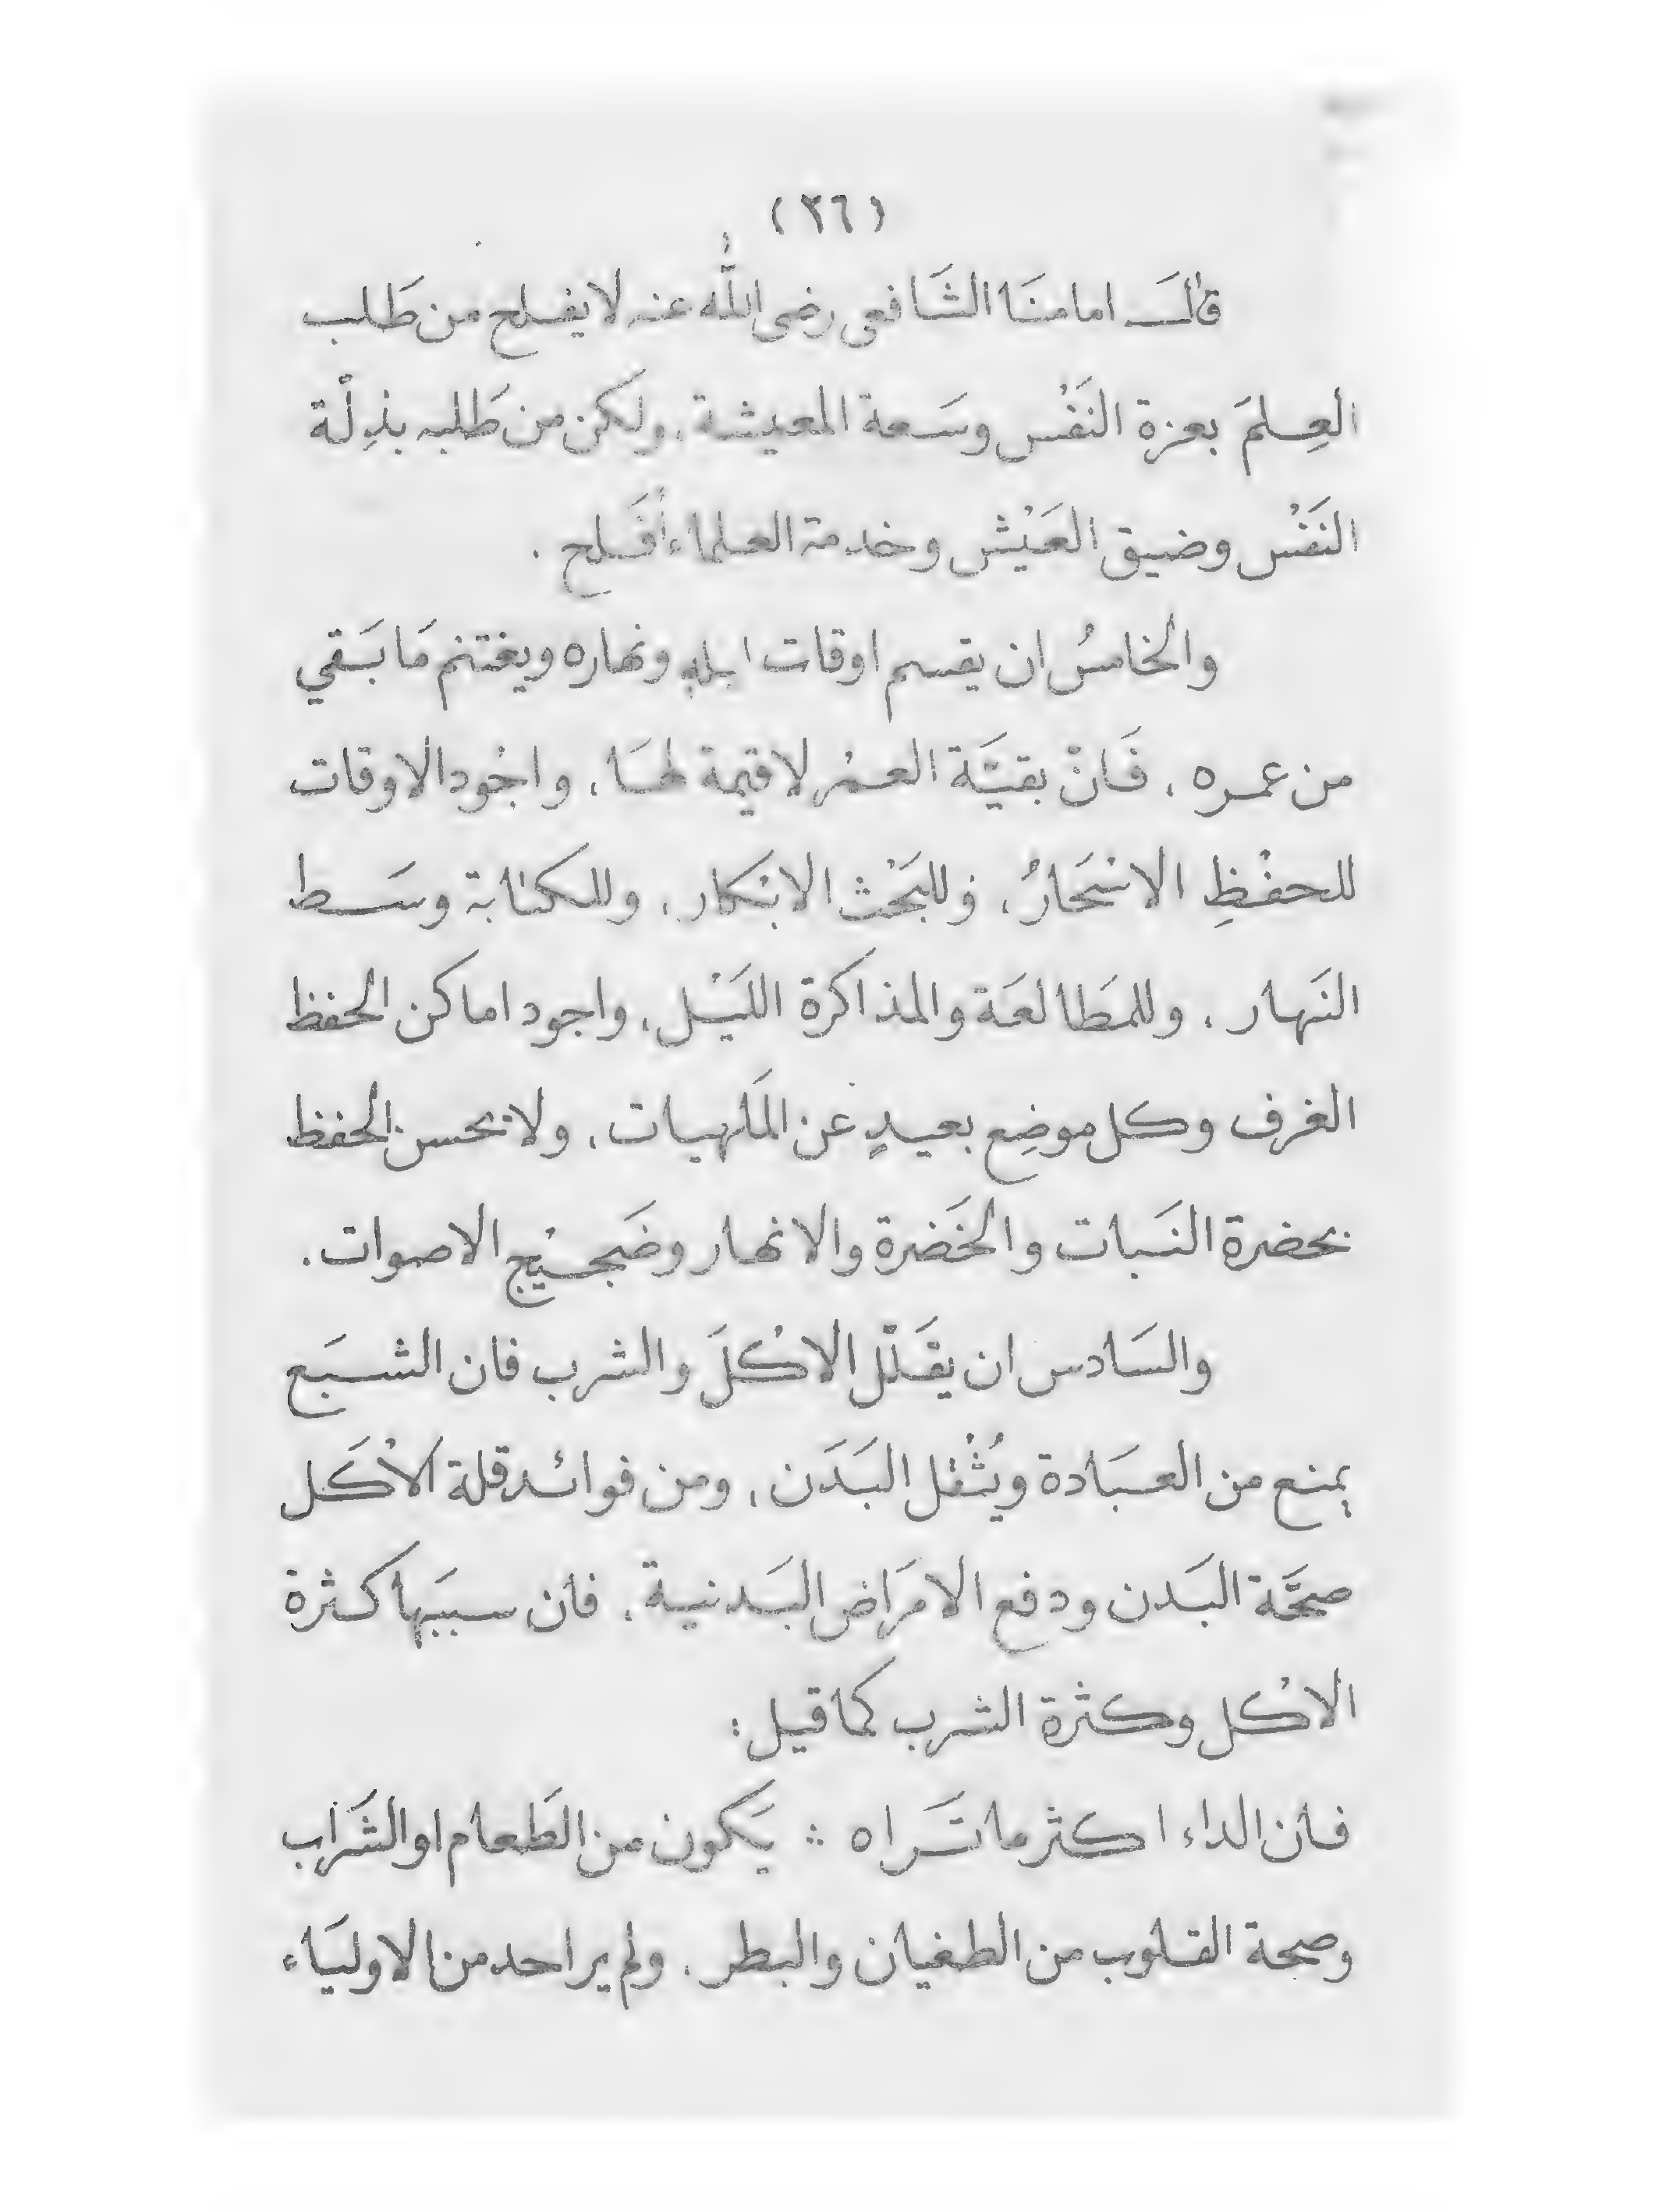 (٢٦)
قال امامنَا الشَافعى رضى اللّٰه عنه لا يفلح من طَلب
العِلمَ بعزة النَفْس وسَعة المعيشة، ولكن من طَلبه بذِلّة
النَفْس وضيق العَيْش وخدمة العلماء أفَلح .
والخامسُ ان يقسم اوقات ليله ونهاره ويغتنم مَا بَقي
من عمره ، فَانّ بقيَّة العمْر لا قيمة لهَا ، واجْود الاوقات
للحفْظِ الاسْحَارُ، وللبَحْث الابْكار، وللكتابة وسَط
النَهار ، وللمَطالعَة والمذاكرة اللَيْل، واجود اماكن الحفظ
الغرف وكل موضِع بعيدٍ عن المَلهيات، ولا يحسن الحفظ
بحضرة النَبات والخَضرة والانهار وضَجيْج الاصوات .
والسَادس ان يقَلّل الاكْلَ والشرب فان الشبَع
يمنع من العبَادة ويُثْقل البَدَن ، ومن فوائد قلة الاْكَل
صحَّة البَدن ودفع الامرَاض البَدنية ، فان سببَها كثرة
الاكْل وكثرة الشرب كما قيل :
فان الداء اكثر ما تَراه ∴ يَكون من الطَعام او الشَراب
وصحة القلوب من الطغيان والبطر . ولم ير احد من الاوليَاء